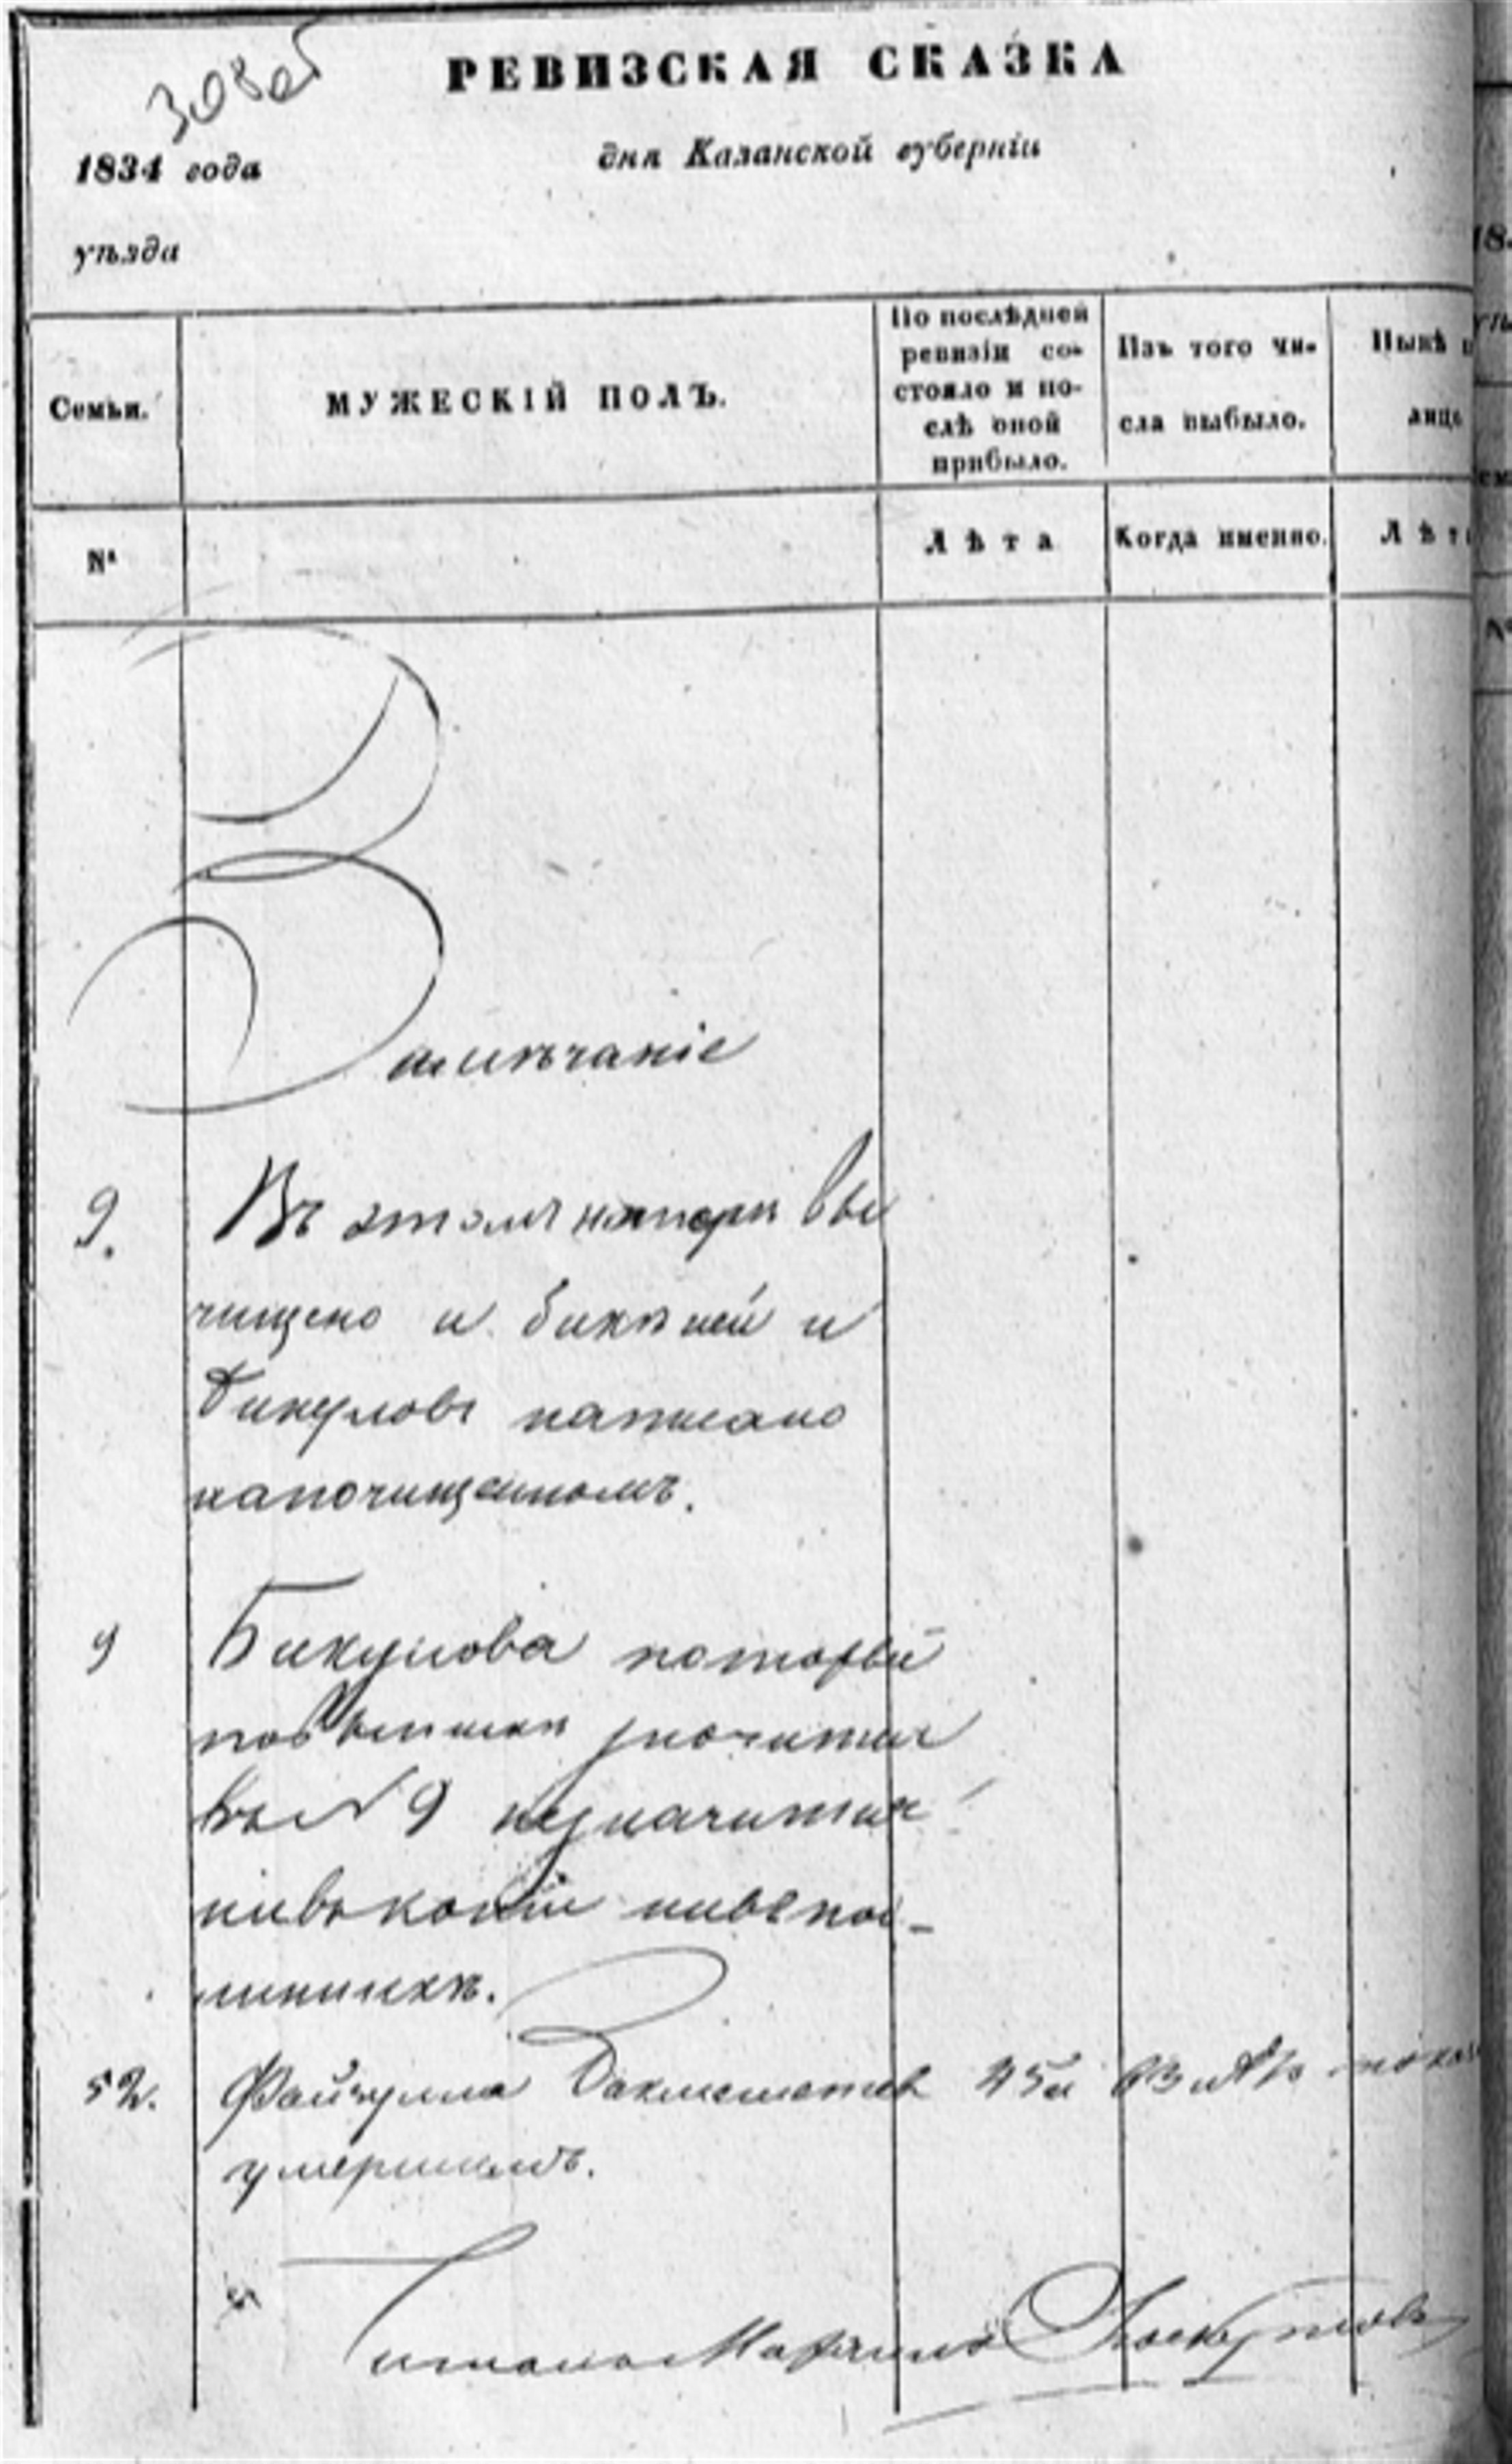 308 об
РЕВИЗСКАЯ СКАЗКА
1834 года
дня Казанской губерніи
уѣзда
Семьи.
МУЖЕСКІЙ ПОЛЪ.
По послѣдней
ревизіи со-
стояло и по-
слѣ оной
прибыло.
Изъ того чи-
сла выбыло.
Нынѣ
лицо
№
Лѣта
Когда именно.
Лѣт
Замѣчаніе
9.
Въ этомъ номерѣ вы
чищено и бикѣней и
Бикуловъ написано
напочищенномъ.
9
Бикулова который
значится
во № 9 незначится
нивъ копіи
52.
Файзулла 45и 63
умершимъ.
Читалъ